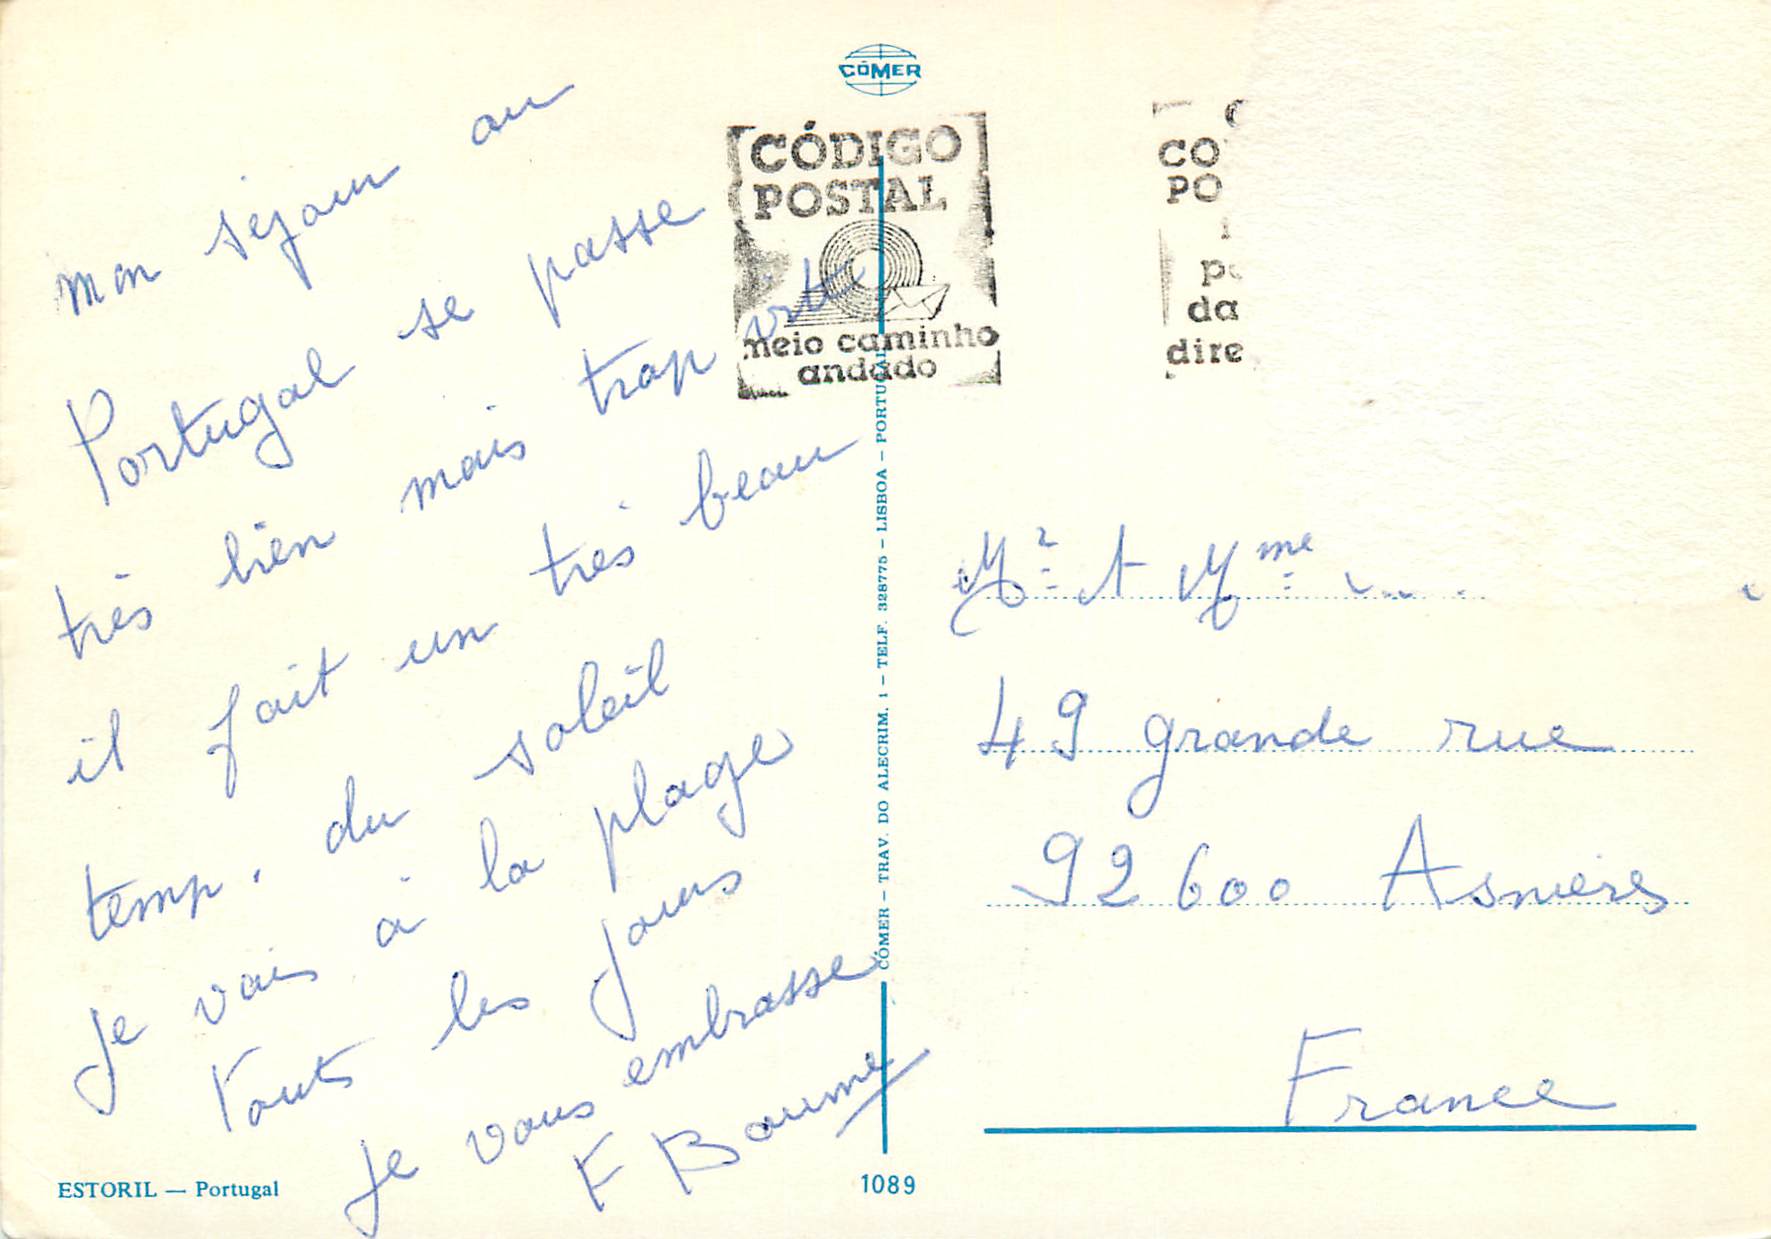 CÓMER
CÓDIGO
POSTAL
meio caminho
andado
CO
PO
da
dire
mon séjour au
Portugal se passe
très bien mais trop vite
il fait un très beau
temp. du soleil
je vais à la plage
touts les jours
je vous embrasse
F Baume
Mr et Mme
49 grande rue
92600 Asnières
France
CÓMER – TRAV. DO ALECRIM, 1 – TELF. 328775 – LISBOA – PORTUGAL
ESTORIL — Portugal
1089